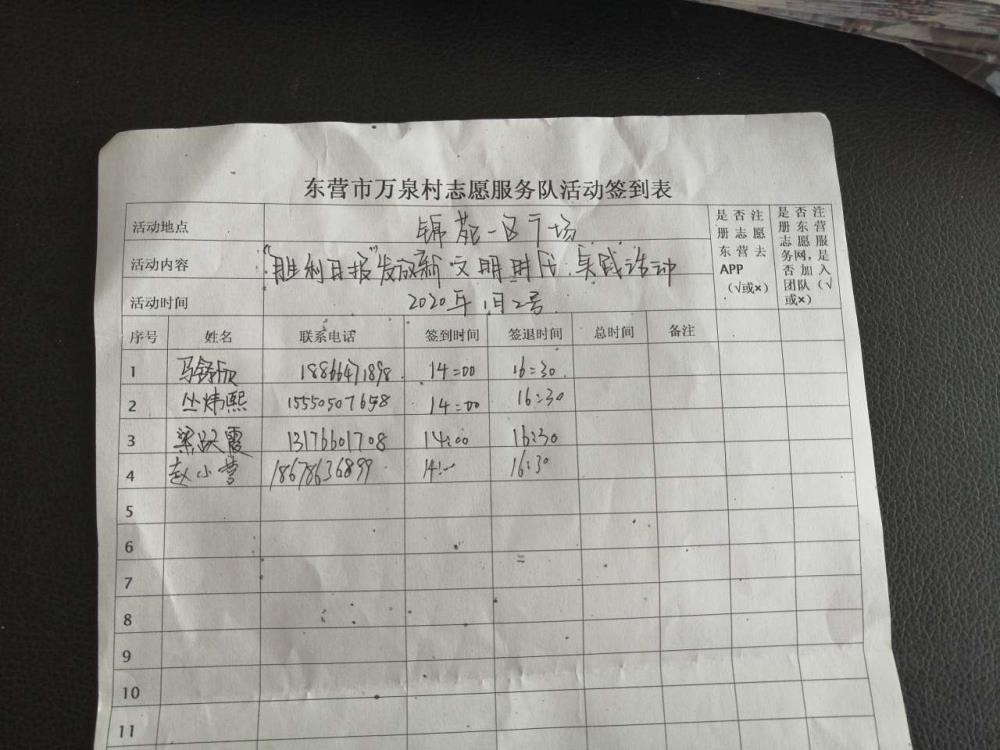 东营市万泉村志愿服务队活动签到表
活动地点 锦苑一区广场
是否注册志愿东营去APP（√或×）
是否注册东营志愿服务网，是否加入团队（√或×）
活动内容 “胜利日报”发放新文明时代实践活动
活动时间 2020年1月2号
序号 姓名 联系电话 签到时间 签退时间 总时间 备注
1 马舒欣 18866471898 14:00 16:30
2 丛炜熙 15550507658 14:00 16:30
3 梁跃霞 13176601708 14:00 16:30
4 赵小营 18678636899 14:00 16:30
5
6
7
8
9
10
11